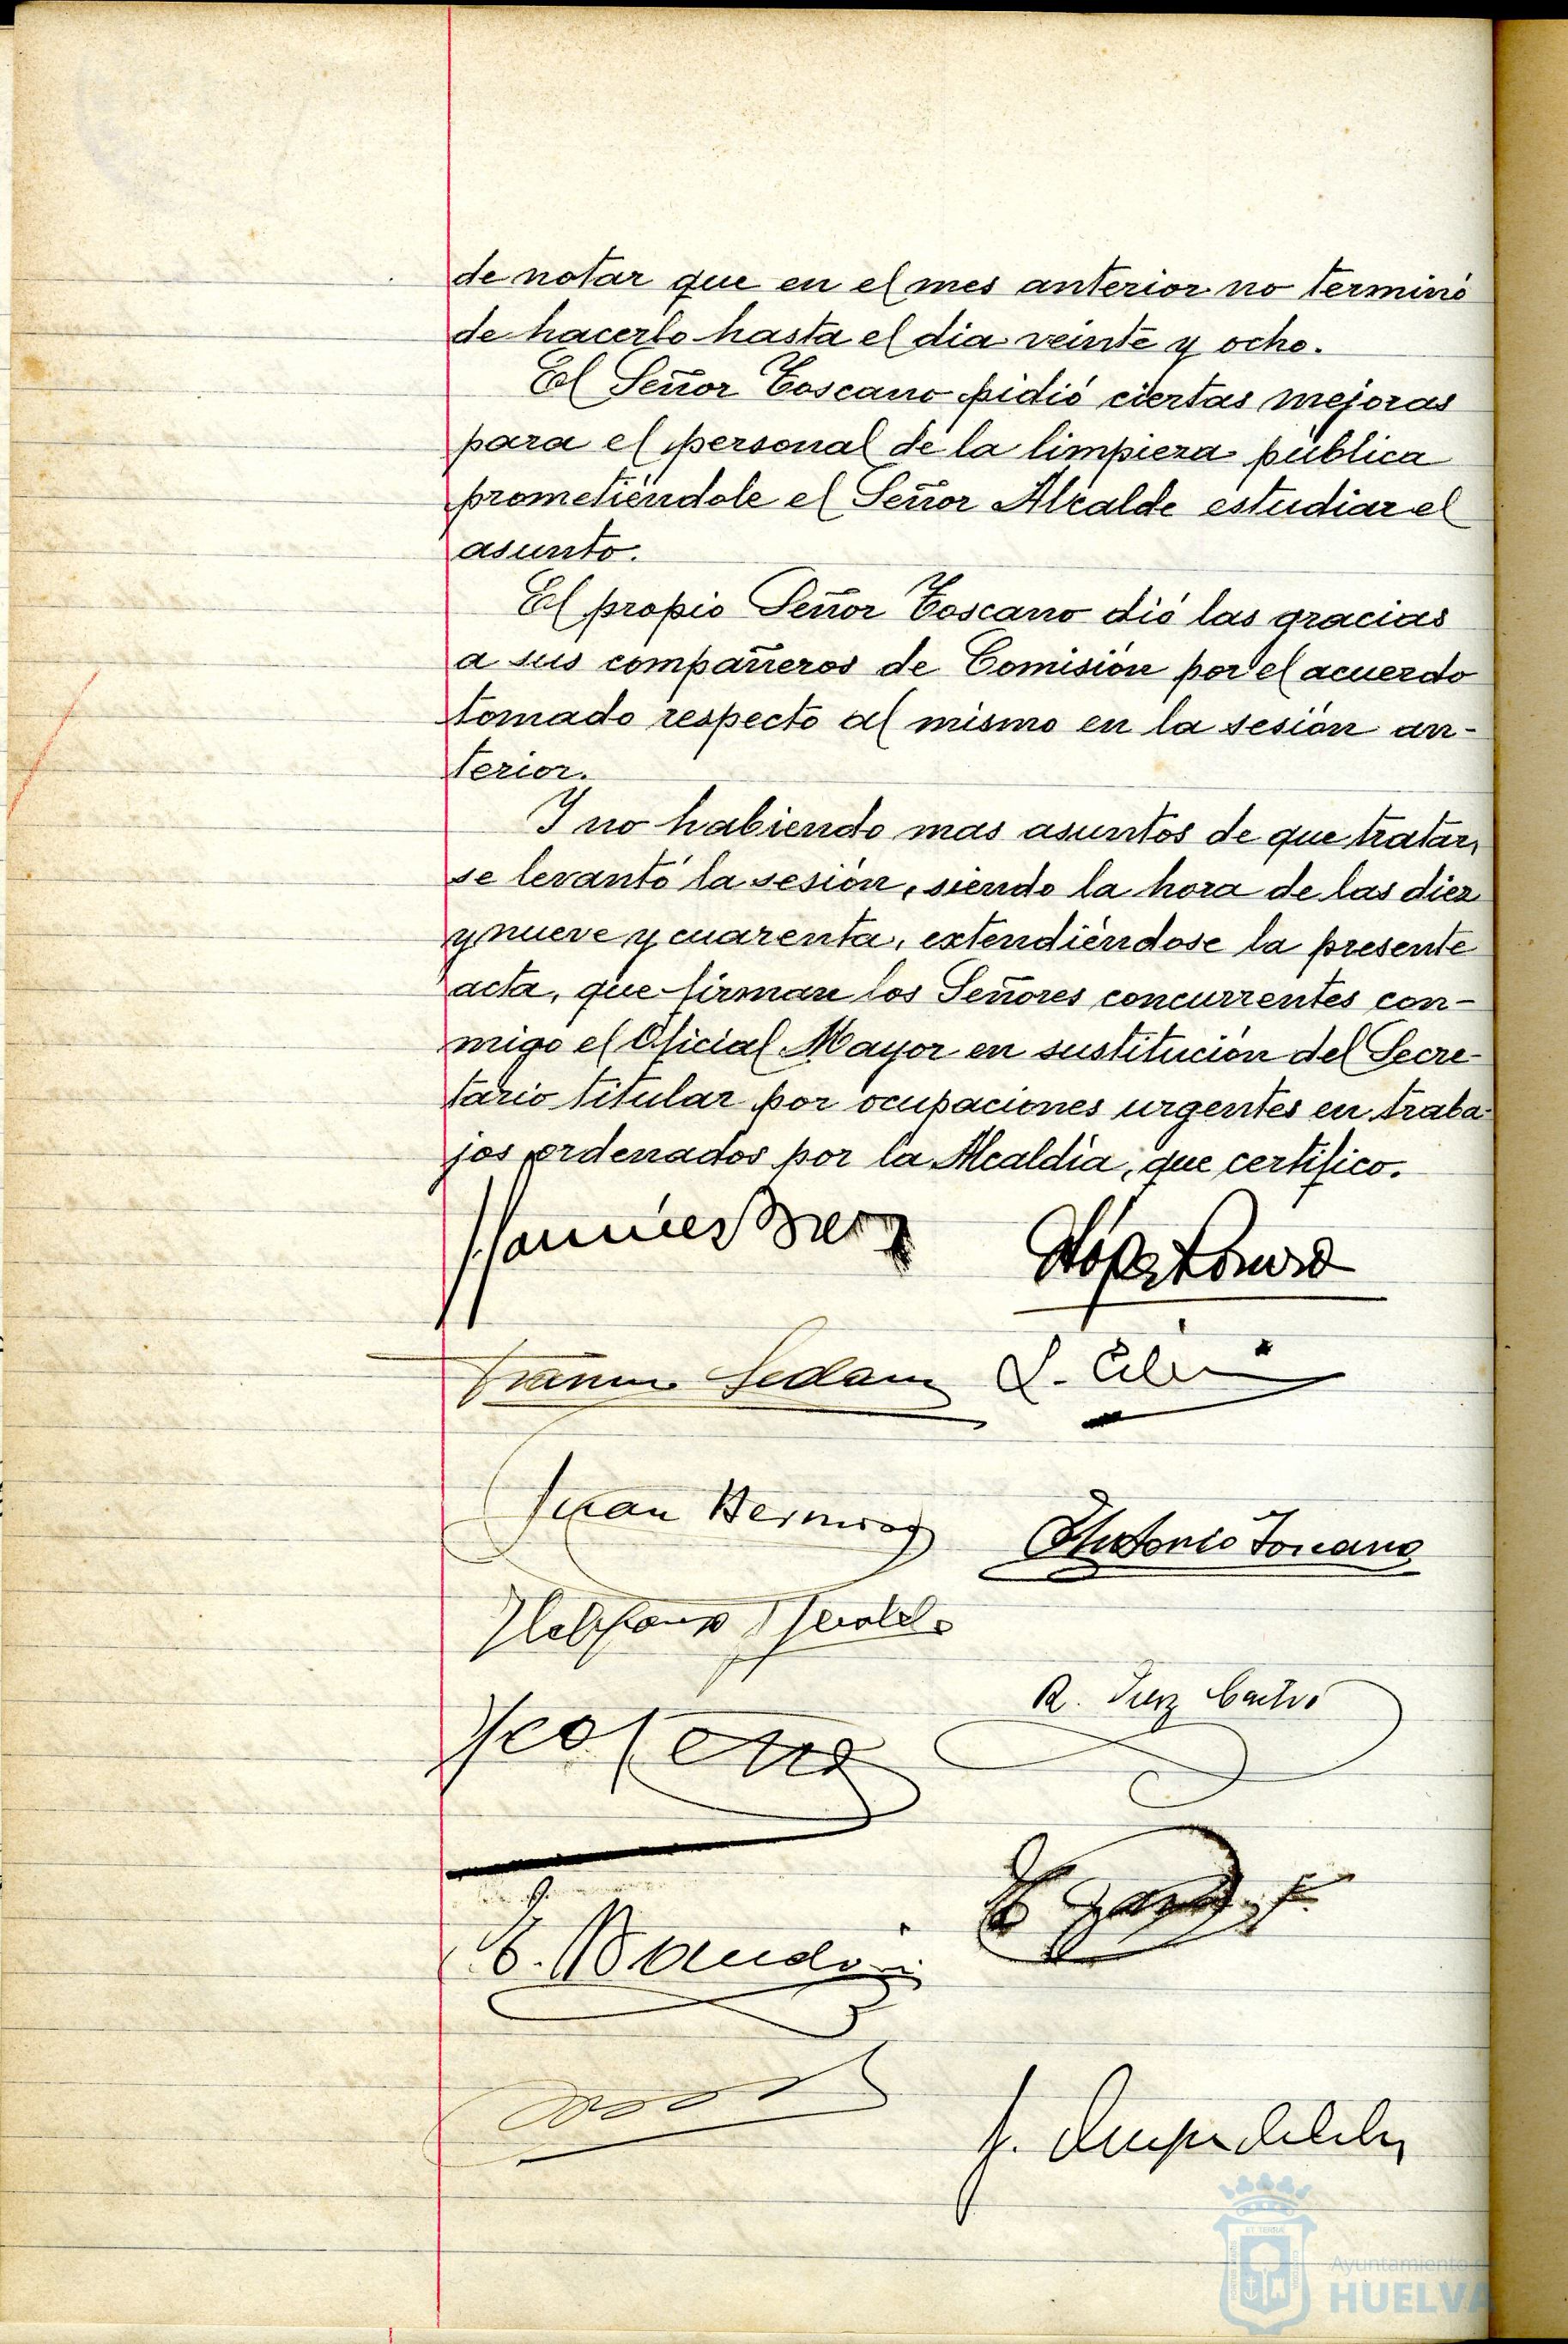 de notar que en el mes anterior no terminó
de hacerlo hasta el dia veinte y ocho.
El Señor Toscano pidió ciertas mejoras
para el personal de la limpieza pública
prometiéndole el Señor Alcalde estudiar el
asunto.
El propio Señor Toscano dió las gracias
a sus compañeros de Comisión por el acuerdo
tomado respecto al mismo en la sesión an-
terior.
Y no habiendo mas asuntos de que tratar,
se levantó la sesión, siendo la hora de las diez
y nueve y cuarenta, extendiéndose la presente
acta, que firman los Señores concurrentes con-
migo el Oficial Mayor en sustitución del Secre-
tario titular por ocupaciones urgentes en traba-
jos ordenados por la Alcaldía, que certifico.
Juan
Antonio Toscano
R. Castro
Ayuntamiento
HUELVA